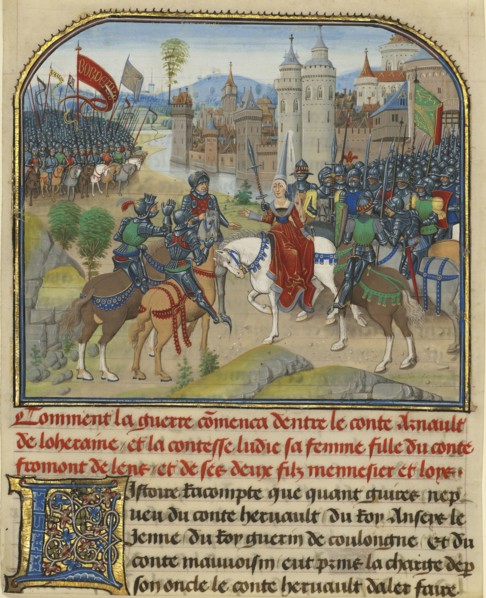 Comment la guerre cõmenca dentre le conte Aznault
de loheraine, et la contesse ludie sa femme fille du conte
fromont de lens, et de ses deux filz mennesier et loys.
Listoire racompte que quant guires nep
ueu du conte heruault, du Roy Anseys le
Jenne, du Roy guerin de coulongne Et du
conte mauuoisin eut prins la charge dep
son oncle le conte heruault daler faire